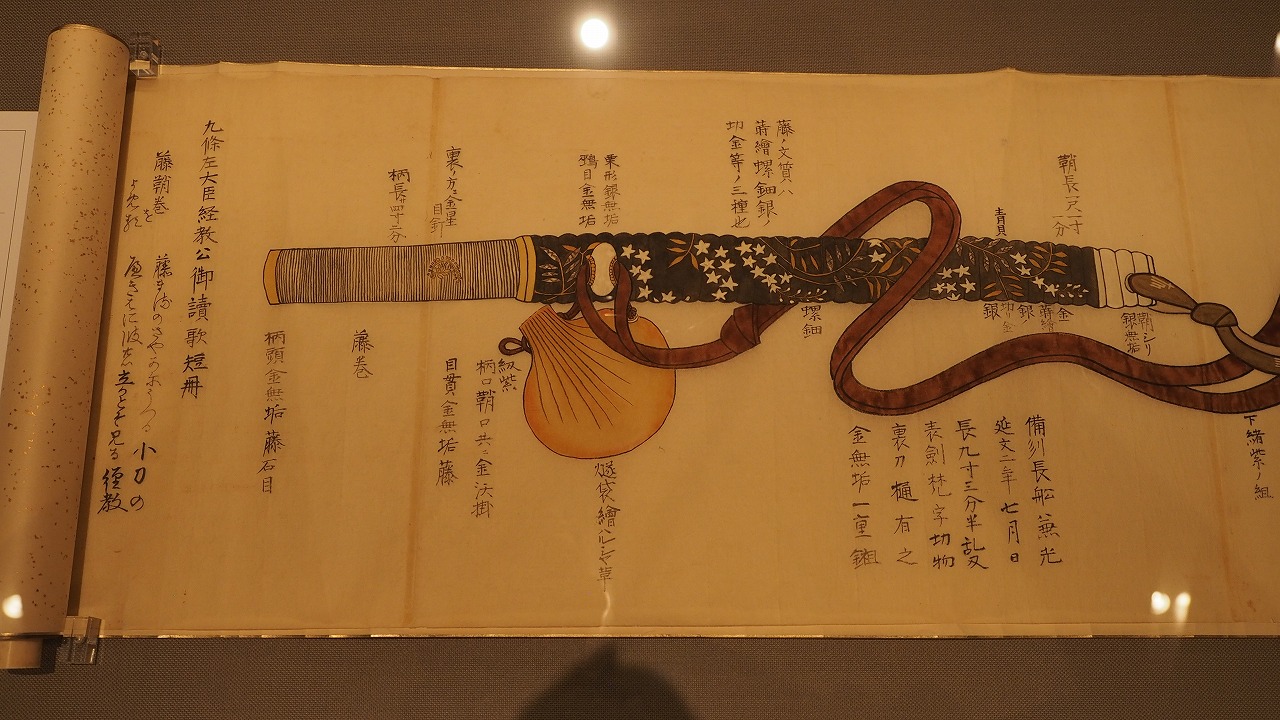 鞘長一尺一寸
一分
青貝
藤ノ文質ハ
蒔繪螺鈿銀
切金等ノ三種也
栗形銀無垢
鵐目金無垢
裏ノ方ニ金星
目釘
柄長サ四寸二分
九條左大臣経教公御讀歌短冊
藤鞘巻
を
小刀の
立
見る經教
柄頭金無垢藤石目
藤巻
目貫金無垢藤
柄口鞘口共ニ金沃掛
紐紫
燧袋繪ハルシヤ草
螺鈿
銀
切金
銀
蒔繪
金
鞘シリ
銀無垢
備州長船兼光
延文二年七月日
長九寸三分半乱刄
表劍梵字切物
裏刀樋有之
金無垢一重鎺
下緒紫ノ組